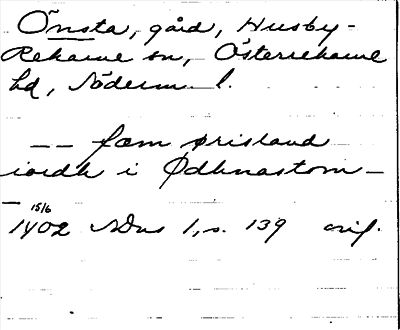 Önsta, gård, Husby-
Rekarne sn, Österrekarne
hd, Söderm. l.
-- fæm ørisland
iordh i Ødhnastom -
- 15/6
1402 SDns 1, s. 139 orig.